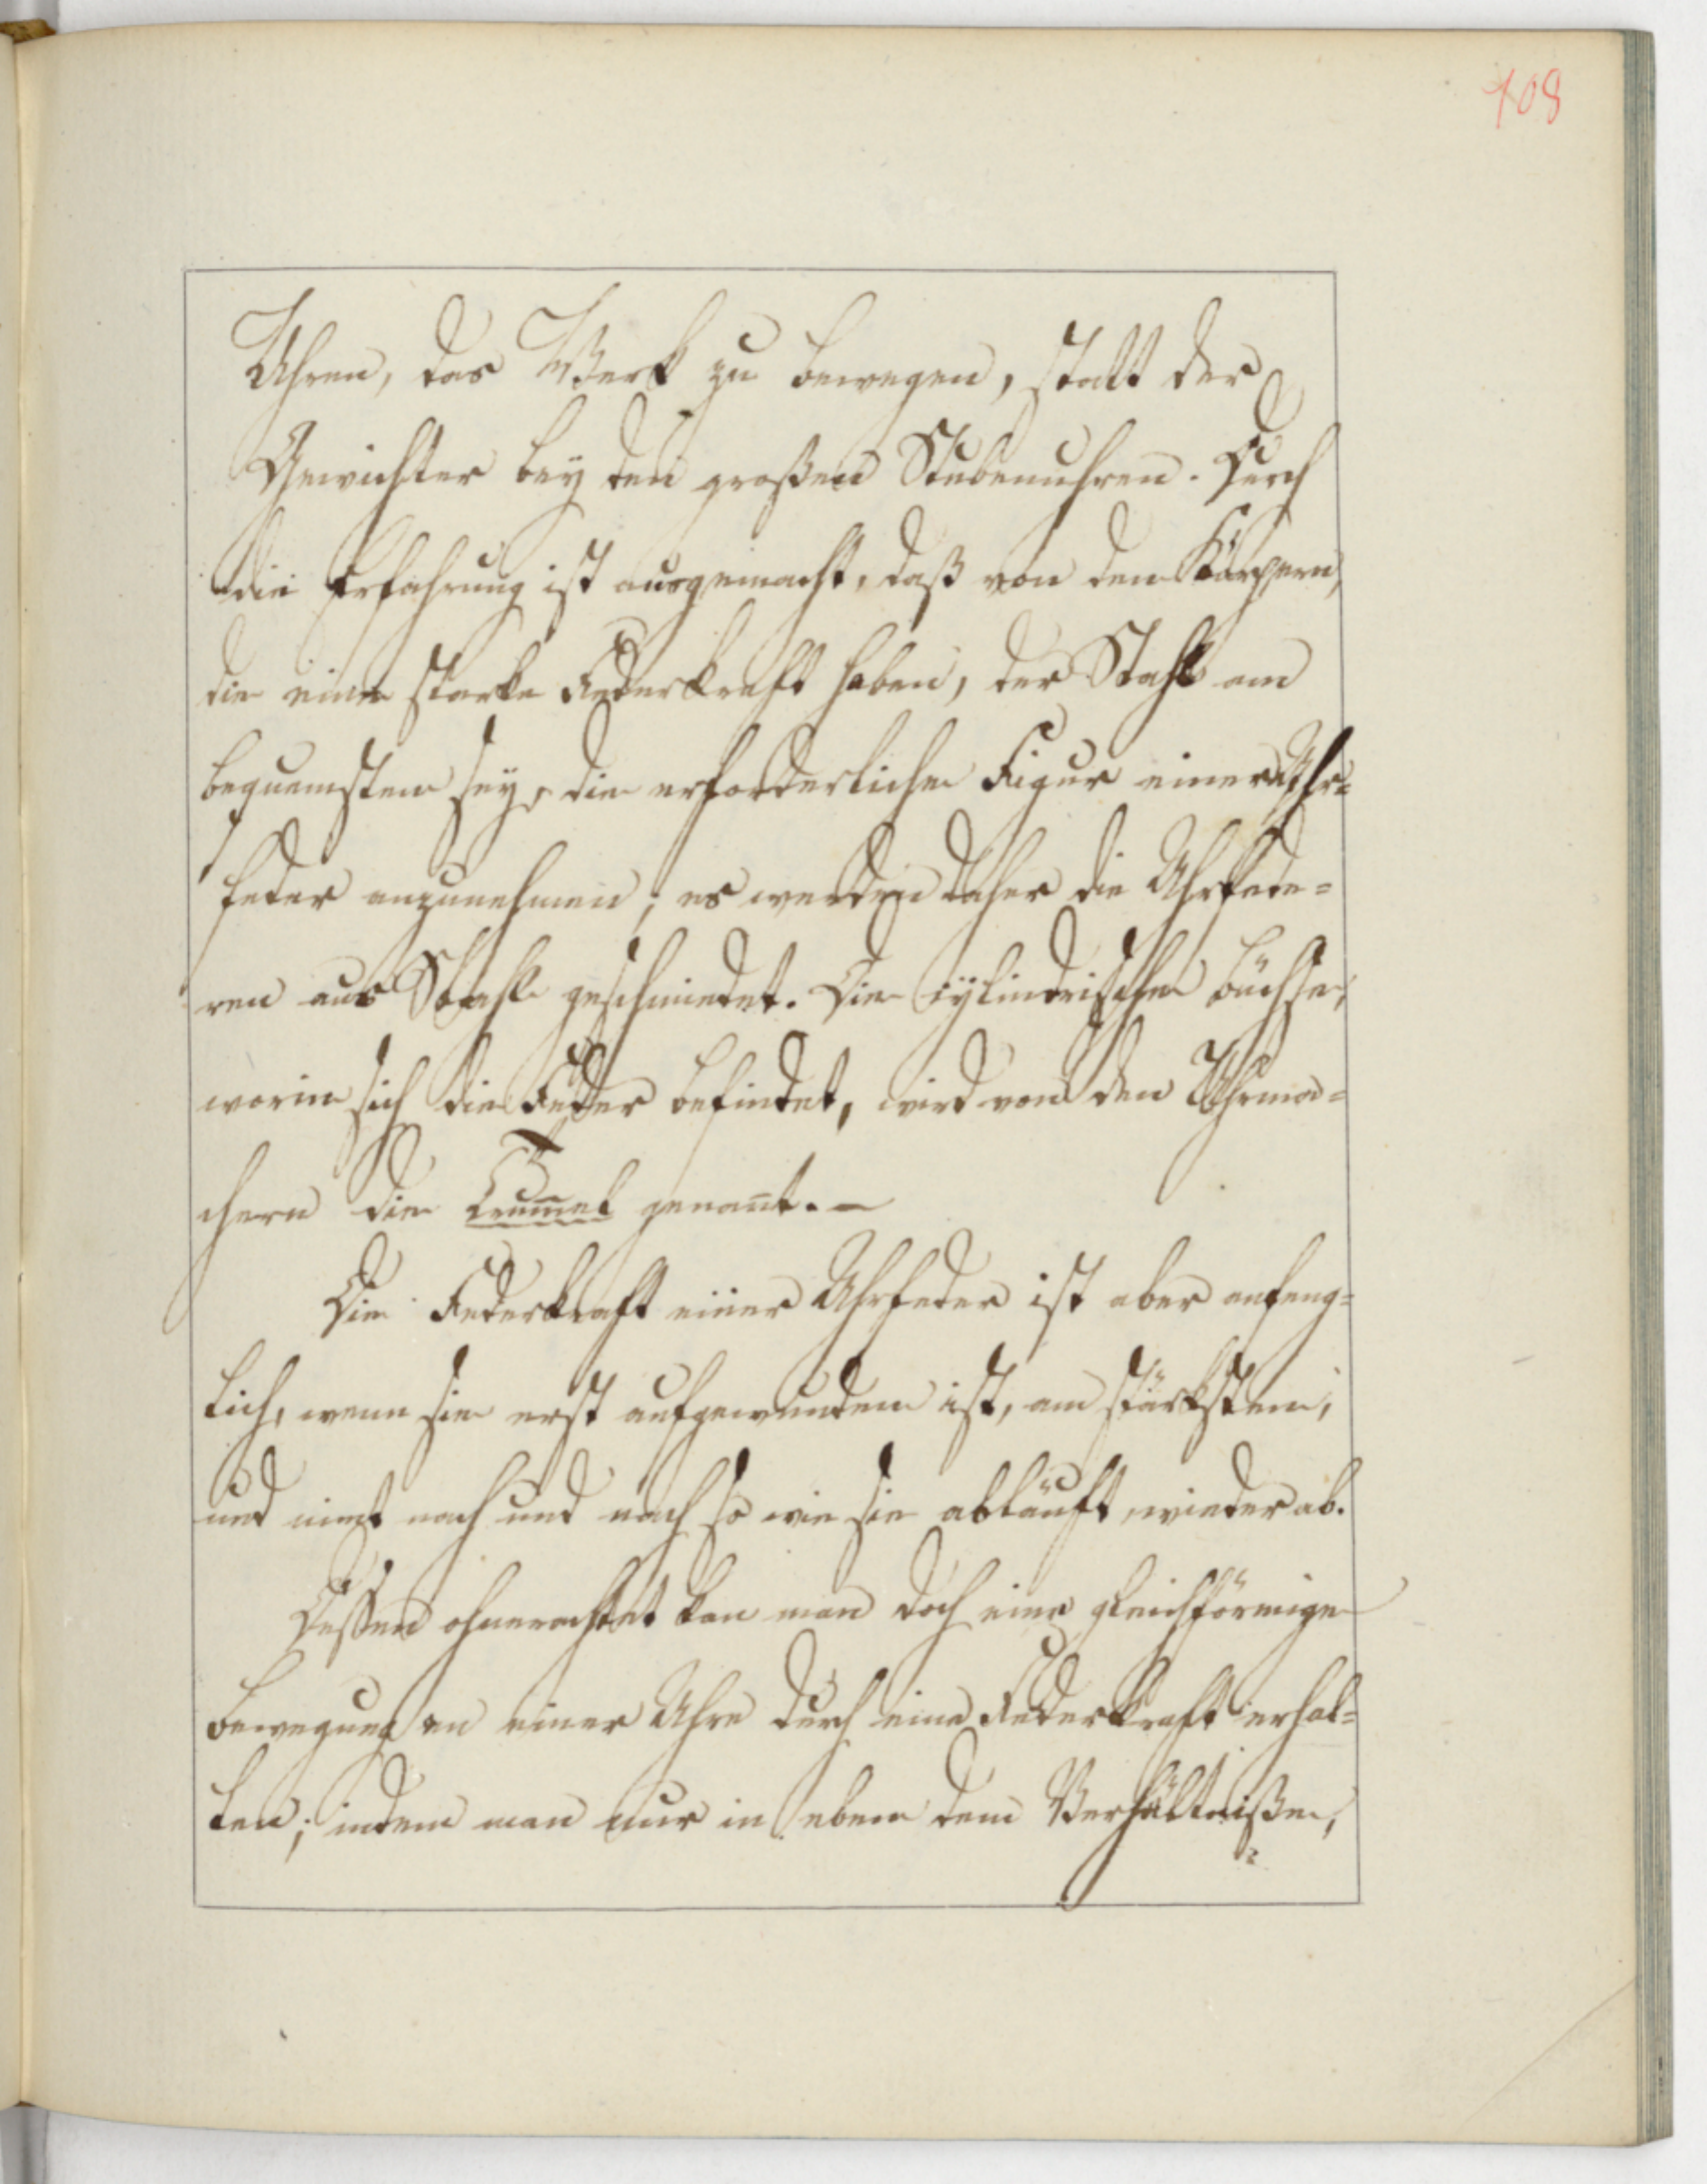 108
Uhren, das Werk zu bewegen, statt der
Gewichter bey den großen Stubenuhren. Durch
die Erfahrung ist ausgemacht, daß von den Körpern,
die eine starke Federkraft haben, der Stahl am
bequemsten sey, die erforderliche Figur einer Uhr=
feder anzunehmen; es werden daher die Uhrfede=
ren aus Stahl geschmiedet. Die cylindrische Büchse,
worin sich die Feder befindet, wird von den Uhrma=
chern die Trum̅el genan̅t. –
Die Federkraft einer Uhrfeder ist aber anfeng=
lich, wenn sie erst aufgewunden ist, am stärksten,
und nimt nach und nach so wie sie abläuft, wieder ab.
Dessen ohnerachtet kan man doch eine gleichförmige
Bewegung an einer Uhre durch eine Federkraft erhal=
ten; indem man nur in eben dem Verhältniße,